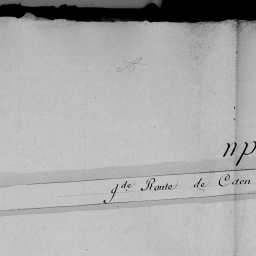 np
gde Route de Caen